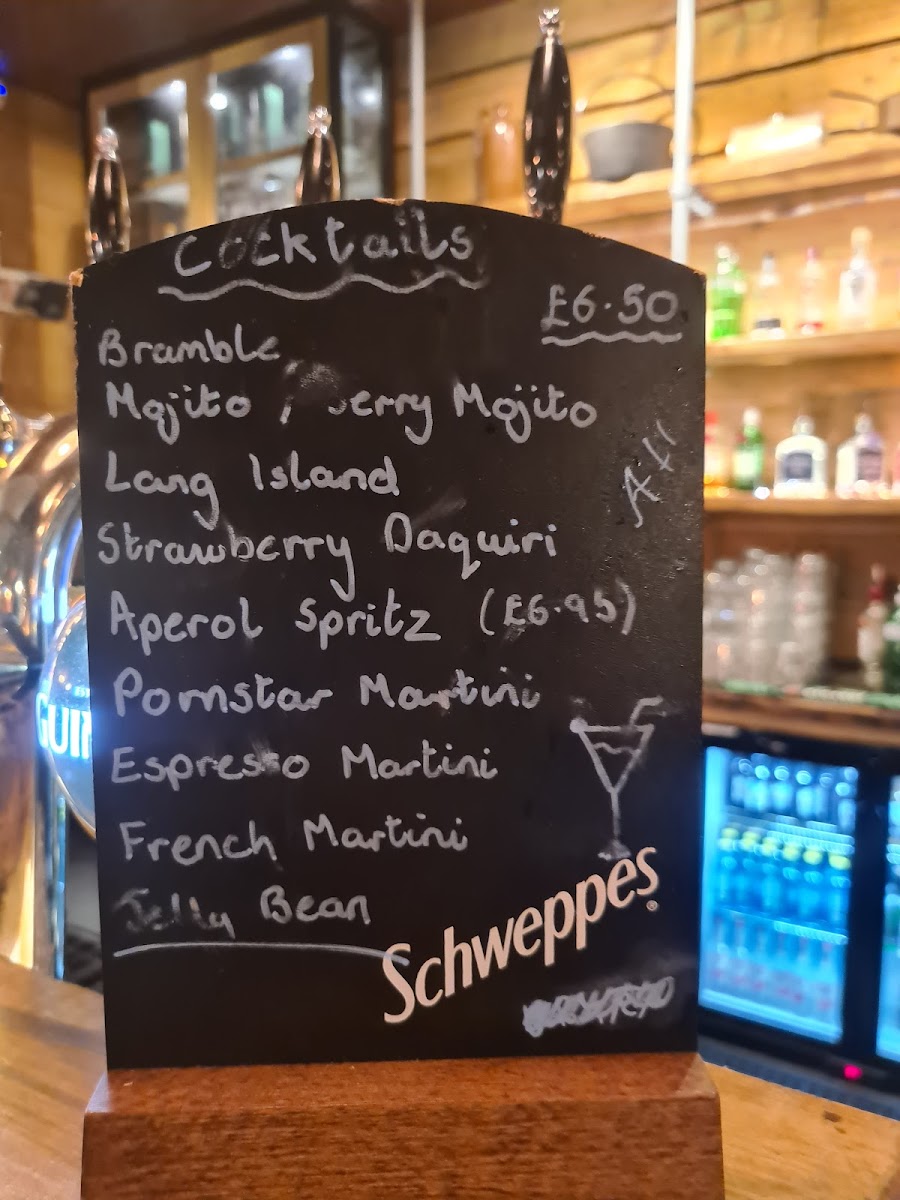 Cocktails
£6.50
Bramble
Mojito / erry Mojito
All
Long Island
Strawberry Daquiri
Aperol Spritz (£6.95)
Pornstar Martini
Espresso Martini
French Martini
Jelly Bean
Schweppes
GUIN